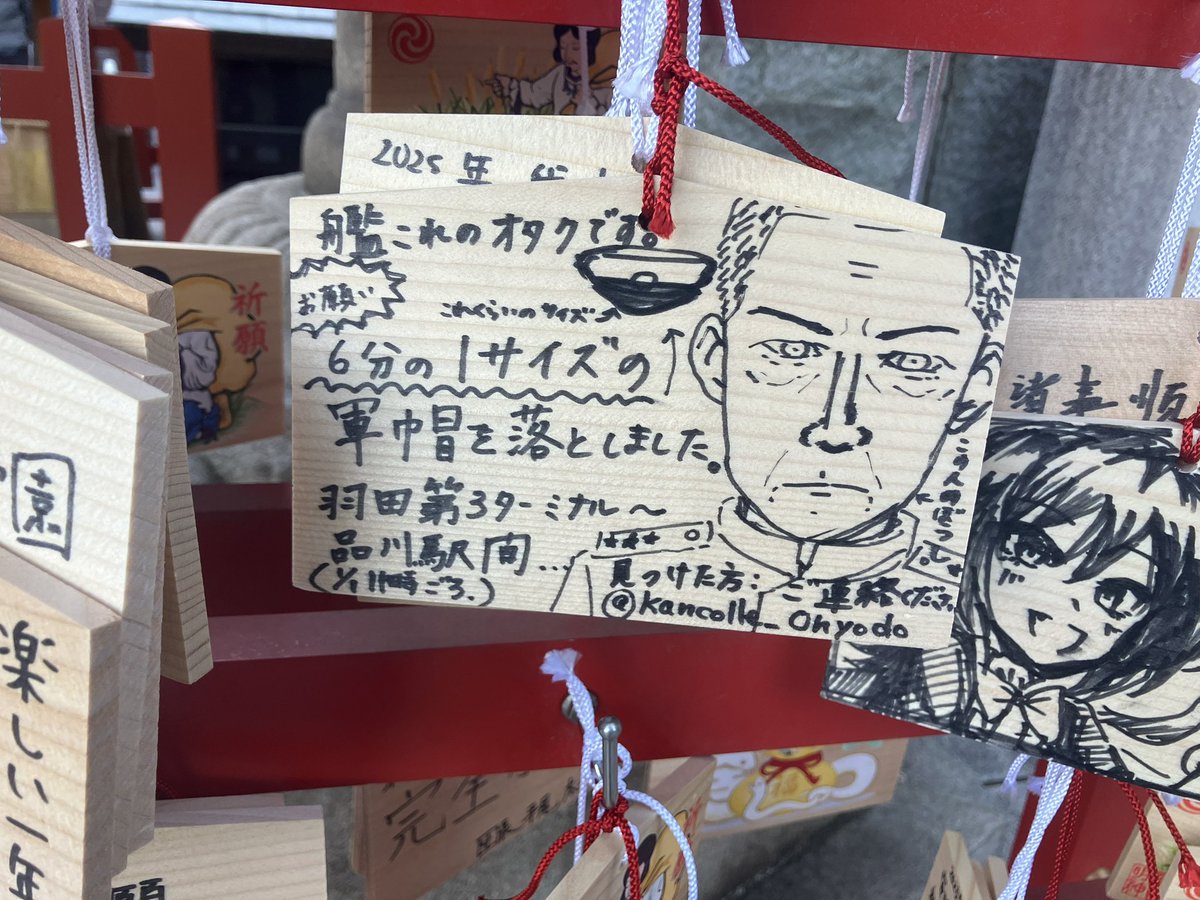 2025年
艦これのオタクです。
お願い
これくらいのサイズ↗
6分の1サイズの
軍帽を落としました。
羽田第3ターミナル〜
品川駅間...
(1/1 11時ごろ.)
この人のぼうし。
見つけた方:
ご連絡ください
@kancolle_Ohyodo
祈願
園
楽しい一年
諸事順
願